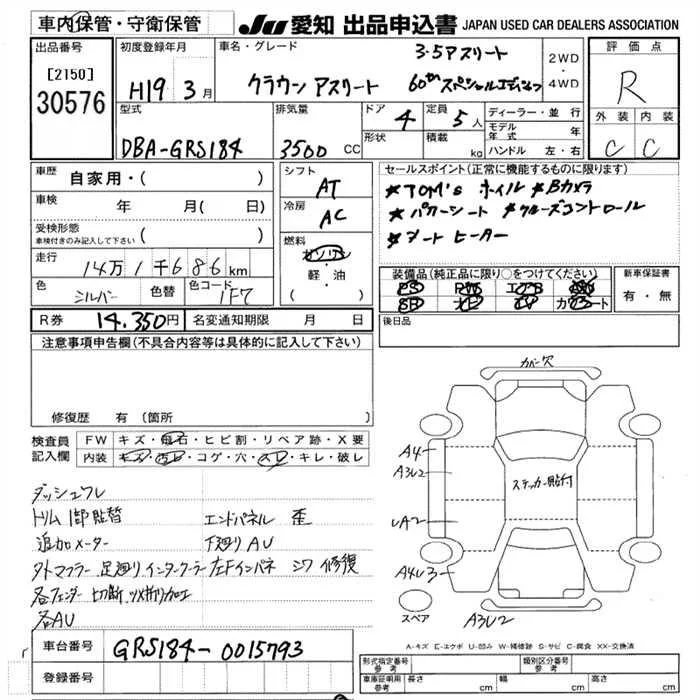 車内保管・守衛保管
JU 愛知 出品申込書 JAPAN USED CAR DEALERS ASSOCIATION
出品番号
[2150]
30576
初度登録年月
H19 3月
車名・グレード
3.5アスリート
クラウン アスリート 60th スペシャルエディション
2WD
・
4WD
評価点
R
外装 内装
C C
型式
DBA-GRS184
排気量
3500 CC
ドア
4
定員
5人
形状
積載
kg
ディーラー・並行
モデル年式 年
ハンドル 左・右
車歴
自家用・( )
車検
年 月( 日)
受検形態
車検付きのみ記入して下さい ( )
走行
14万1千686km
色
シルバー
色替
色コード
1F7
シフト
AT
冷房
AC
燃料
ガソリン
・
軽・油
( )
セールスポイント(正常に機能するものに限ります)
★TOM's ホイル ★Bカメラ
★パワーシート ★クルーズコントロール
★シートヒーター
装備品(純正品に限り○をつけてください)
PS PW エアB
SR ナビ TV カワシート
新車保証書
有・無
後日品
R券 14,350円 名変通知期限 月 日
注意事項申告欄(不具合内容等は具体的に記入して下さい)
修復歴 有(箇所
検査員記入欄
FW キズ・飛石・ヒビ割・リペア跡・X要
内装 キズ・汚レ・コゲ・穴・スレ・キレ・破レ
ダッシュワレ
トリム 1部貼替 エンドパネル 歪
追加メーター 下廻りAU
外マフラー 足廻り インタークーラー 左Fインパネ シワ 修復
各フェンダー切断、ツメ折り加工
各AU
カバー欠
A4
A3U2
UA2
A4U3
ステッカー貼付
スペア
A3U2
A-キズ E-エクボ U-凹み W-補修跡 S-サビ C-腐食 XX-交換済
車台番号 GRS184-0015793
登録番号
形式指定番号 参考
類別区分番号 参考
車庫証明用 参考 長さ cm 幅 cm 高さ cm